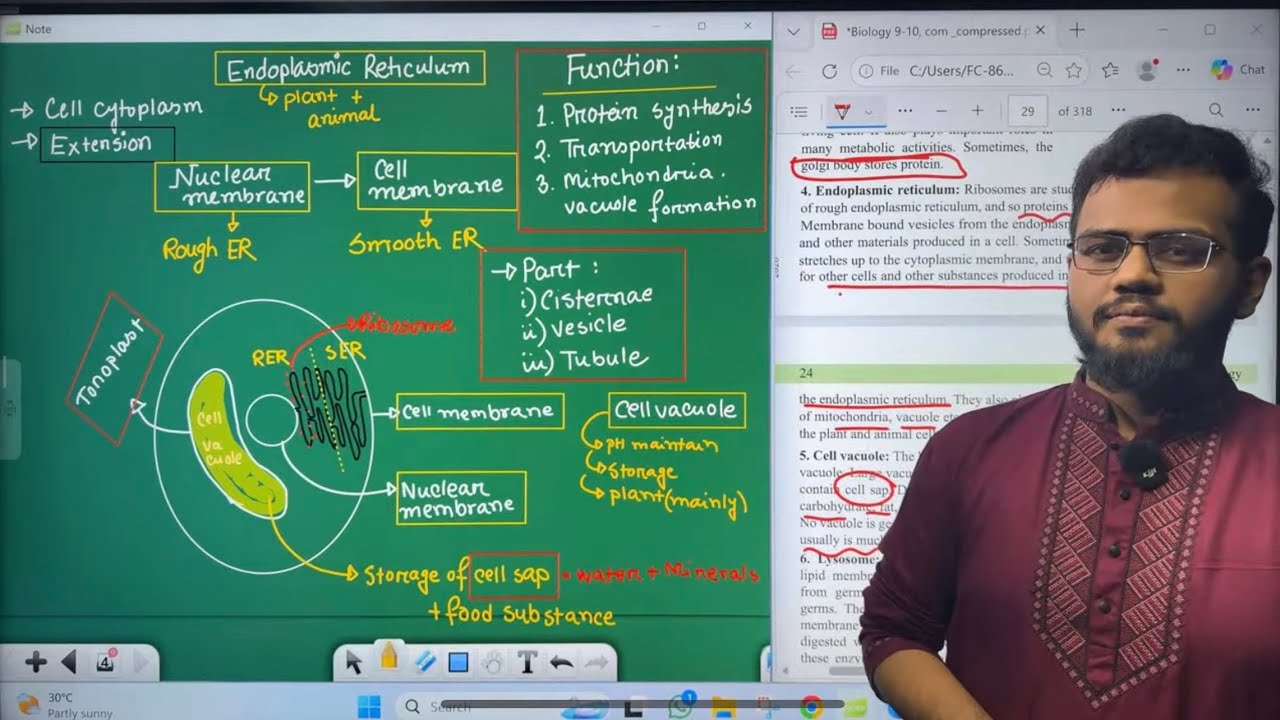 Note
Endoplasmic Reticulum
plant +
animal
→ Cell cytoplasm
→ Extension
Nuclear
membrane
→ Cell
membrane
Rough ER
Smooth ER
Function:
1. Protein synthesis
2. Transportation
3. Mitochondria.
vacuole formation
→ Part:
i) Cisternae
ii) Vesicle
iii) Tubule
Tonoplast
Ribosome
RER
SER
Cell
va
cuole
Cell membrane
Nuclear
membrane
Cell vacuole
pH maintain
Storage
plant (mainly)
Storage of cell sap
= water + Minerals
+ food substance
4
T
30°C
Partly sunny
Search
1
*Biology 9-10, com _compressed.p
File C:/Users/FC-86...
Chat
29 of 318
many metabolic activities. Sometimes, the
golgi body stores protein.
4. Endoplasmic reticulum: Ribosomes are
of rough endoplasmic reticulum, and so proteins
Membrane bound vesicles from the
and other materials produced in a cell.
stretches up to the cytoplasmic membrane, and
for other cells and other substances produced in
24
the endoplasmic reticulum. They also
of mitochondria, vacuole
the plant and animal
5. Cell vacuole: The
vacuole. Large
contain cell sap.
carbohydrate, fat,
No vacuole is
usually is
6. Lysosome:
lipid
from
germs. The
membrane
digested
these
dji